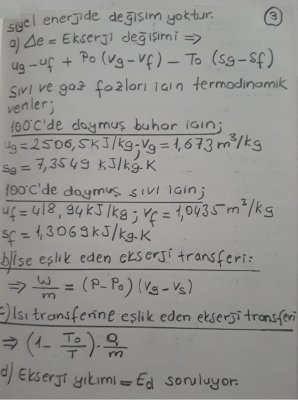 siyel enerjide değişim yoktur.
3
a) Δe = Ekserji değişimi ⇒
ug - uf + P0 (vg - vf) - T0 (sg - sf)
Sıvı ve gaz fazları için termodinamik
veriler;
100°C'de doymuş buhar için;
ug = 2506,5 kJ/kg; vg = 1,673 m³/kg
sg = 7,3549 kJ/kg.K
100°C'de doymuş sıvı için;
uf = 418,94 kJ/kg; vf = 1,0435 m³/kg
sf = 1,3069 kJ/kg.K
b) İşe eşlik eden ekserji transferi:
⇒ W/m = (P-P0) (vg - vs)
c) Isı transferine eşlik eden ekserji transferi
⇒ (1 - T0/T) . Q/m
d) Ekserji yıkımı = Ed soruluyor.